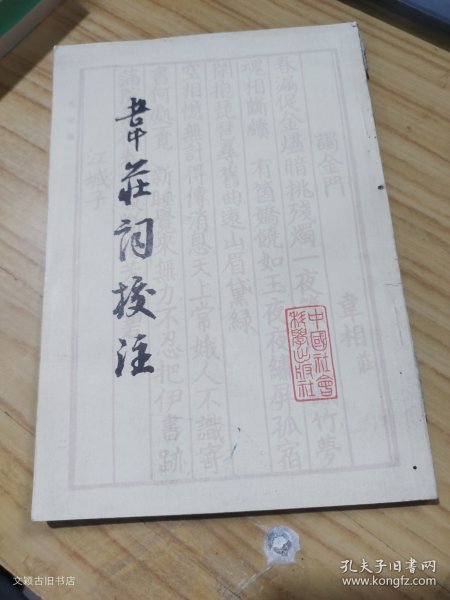 韋莊詞校注
謁金門
韋相莊
春漏促金燼暗挑殘燭一夜
竹夢
相斷續
有箇嬌嬈如玉夜夜繡屏孤宿
閒抱琵琶尋舊曲遠山眉黛綠
空相憶無計得傳消息天上常娥人不識寄
書何處覓
新睡覺來無力不忍把伊書跡
江城子
中國社會
科學出版社
文颖古旧书店
孔夫子旧书网
www.kongfz.com